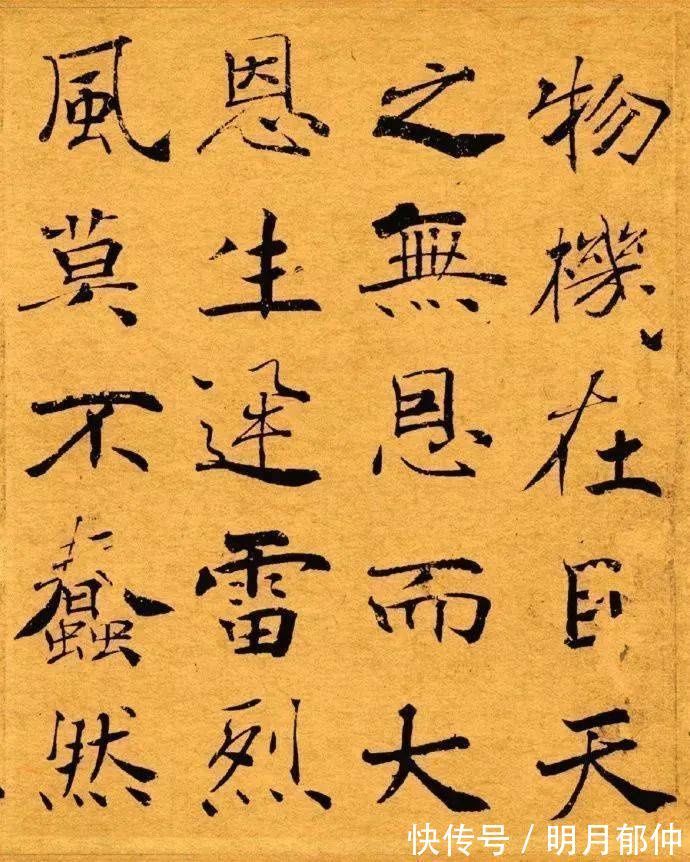 物機在目天
之無恩而大
恩生迅雷烈
風莫不蠢然
快传号 / 明月郁仲